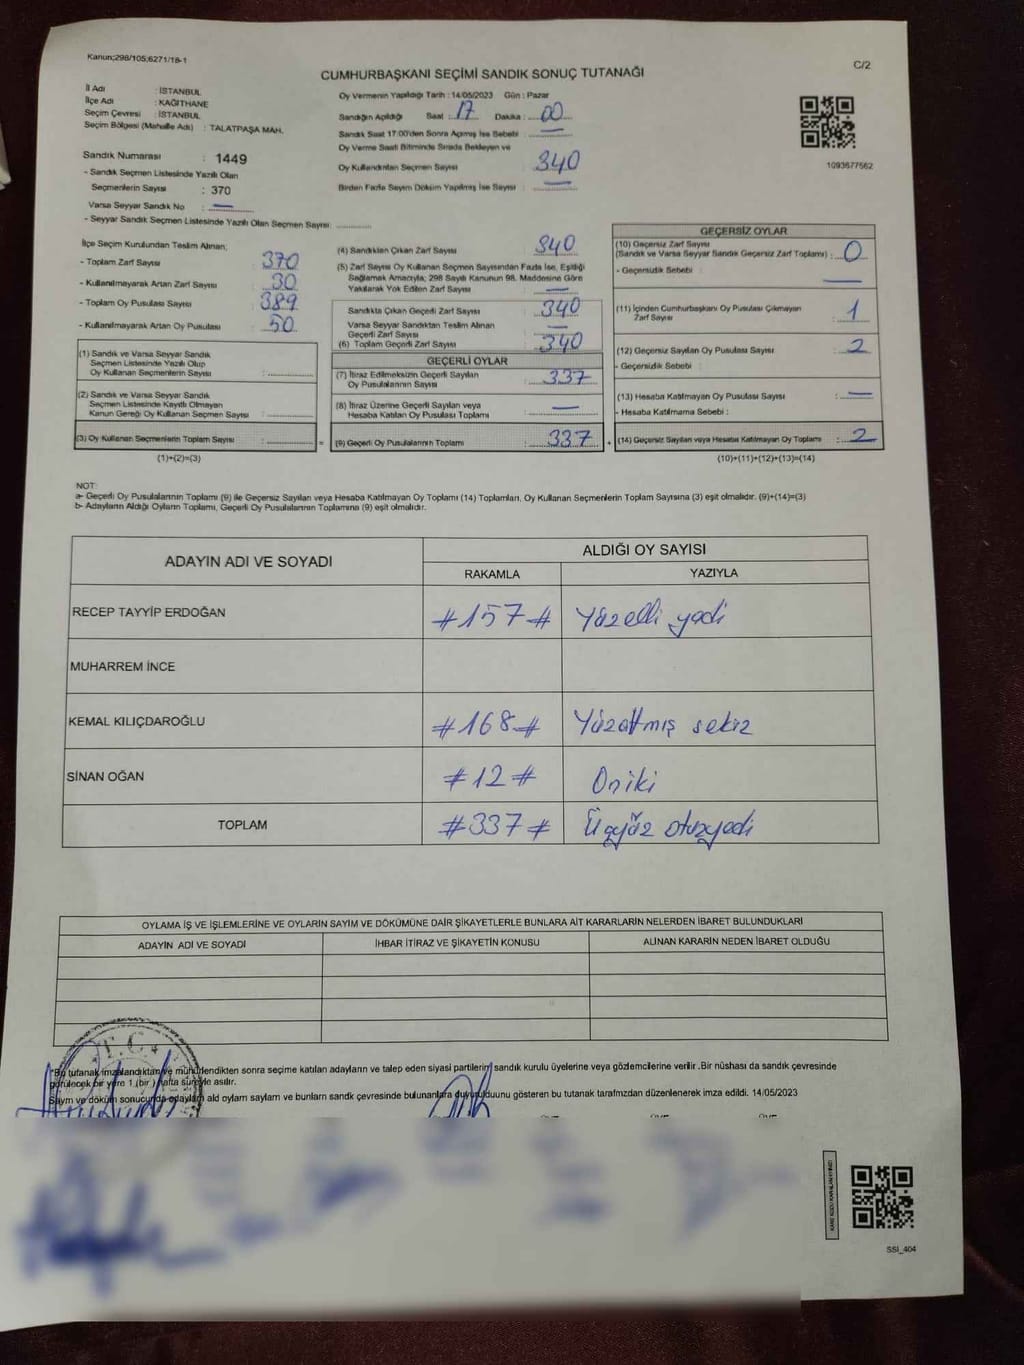 Kanun;298/105;6271/18-1
C/2
CUMHURBAŞKANI SEÇİMİ SANDIK SONUÇ TUTANAĞI
İl Adı : İSTANBUL
İlçe Adı : KAĞITHANE
Seçim Çevresi : İSTANBUL
Seçim Bölgesi (Mahalle Adı) : TALATPAŞA MAH.
Sandık Numarası : 1449
- Sandık Seçmen Listesinde Yazılı Olan
Seçmenlerin Sayısı : 370
Varsa Seyyar Sandık No : —
- Seyyar Sandık Seçmen Listesinde Yazılı Olan Seçmen Sayısı:
Oy Vermenin Yapıldığı Tarih : 14/05/2023 Gün : Pazar
Sandığın Açıldığı Saat : 17 Dakika : 00
Sandık Saat 17:00'den Sonra Açılmış İse Sebebi : —
Oy Verme Saati Bitiminde Sırada Bekleyen ve
Oy Kullandırılan Seçmen Sayısı 340
Birden Fazla Sayım Döküm Yapılmış İse Sayısı : —
1093677562
İlçe Seçim Kurulundan Teslim Alınan;
- Toplam Zarf Sayısı 370
- Kullanılmayarak Artan Zarf Sayısı 30
- Toplam Oy Pusulası Sayısı 389
- Kullanılmayarak Artan Oy Pusulası 50
(1) Sandık ve Varsa Seyyar Sandık
Seçmen Listesinde Yazılı Olup
Oy Kullanan Seçmenlerin Sayısı :
(2) Sandık ve Varsa Seyyar Sandık
Seçmen Listesinde Kayıtlı Olmayan
Kanun Gereği Oy Kullanan Seçmen Sayısı :
(3) Oy Kullanan Seçmenlerin Toplam Sayısı : =
(1)+(2)=(3)
(4) Sandıktan Çıkan Zarf Sayısı 340
(5) Zarf Sayısı Oy Kullanan Seçmen Sayısından Fazla İse, Eşitliği
Sağlamak Amacıyla; 298 Sayılı Kanunun 98. Maddesine Göre
Yakılarak Yok Edilen Zarf Sayısı —
Sandıkta Çıkan Geçerli Zarf Sayısı 340
Varsa Seyyar Sandıktan Teslim Alınan
Geçerli Zarf Sayısı —
(6) Toplam Geçerli Zarf Sayısı 340
GEÇERLİ OYLAR
(7) İtiraz Edilmeksizin Geçerli Sayılan
Oy Pusulalarının Sayısı 337
(8) İtiraz Üzerine Geçerli Sayılan veya
Hesaba Katılan Oy Pusulası Toplamı —
(9) Geçerli Oy Pusulalarının Toplamı 337 +
GEÇERSİZ OYLAR
(10) Geçersiz Zarf Sayısı
(Sandık ve Varsa Seyyar Sandık Geçersiz Zarf Toplamı) : 0
- Geçersizlik Sebebi : —
(11) İçinden Cumhurbaşkanı Oy Pusulası Çıkmayan
Zarf Sayısı : 1
(12) Geçersiz Sayılan Oy Pusulası Sayısı : 2
- Geçersizlik Sebebi :
(13) Hesaba Katılmayan Oy Pusulası Sayısı : —
- Hesaba Katılmama Sebebi :
(14) Geçersiz Sayılan veya Hesaba Katılmayan Oy Toplamı : 2
(10)+(11)+(12)+(13)=(14)
NOT:
a- Geçerli Oy Pusulalarının Toplamı (9) ile Geçersiz Sayılan veya Hesaba Katılmayan Oy Toplamı (14) Toplamları, Oy Kullanan Seçmenlerin Toplam Sayısına (3) eşit olmalıdır. (9)+(14)=(3)
b- Adayların Aldığı Oyların Toplamı, Geçerli Oy Pusulalarının Toplamına (9) eşit olmalıdır.
ADAYIN ADI VE SOYADI
ALDIĞI OY SAYISI
RAKAMLA YAZIYLA
RECEP TAYYİP ERDOĞAN #157# Yüzelli yedi
MUHARREM İNCE
KEMAL KILIÇDAROĞLU #168# Yüzatmış sekiz
SİNAN OĞAN #12# Oniki
TOPLAM #337# Üçyüz otuzyedi
OYLAMA İŞ VE İŞLEMLERİNE VE OYLARIN SAYIM VE DÖKÜMÜNE DAİR ŞİKAYETLERLE BUNLARA AİT KARARLARIN NELERDEN İBARET BULUNDUKLARI
ADAYIN ADI VE SOYADI İHBAR İTİRAZ VE ŞİKAYETİN KONUSU ALINAN KARARIN NEDEN İBARET OLDUĞU
T.C.
*Bu tutanak imzalandıktan ve mühürlendikten sonra seçime katılan adayların ve talep eden siyasi partilerin sandık kurulu üyelerine veya gözlemcilerine verilir. Bir nüshası da sandık çevresinde
görülecek bir yere 1 (bir) hafta süreyle asılır.
Sayım ve döküm sonucunda adayların aldığı oyların sayıları ve bunların sandık çevresinde bulunanlara duyurulduğunu gösteren bu tutanak tarafımızdan düzenlenerek imza edildi. 14/05/2023
SSI_404